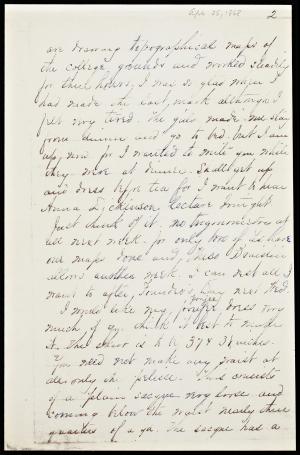 2
are drawing topographical maps of
the college grounds and worked steadily
for three hours, I was so glad when I
had made the last mark although I
felt very tired. The girls made me stay
from dinner and go to bed. but I am
up, now for I wanted to write you while
they were at dinner. Shall get up
and dress before tea for I want to hear
Anna Dickinson lecture to-night
Just think of it, no trigonometry at
all next week. for only two of us have
our maps done and Miss
allows another week. I can rest all I
want to after, Founder's Day next Wed.
I would like my dress very
much, if you think it best to make
it. The skirt is to be 37 & 38 inches.
You need not make any waist at
all, only the pelisse. This consists
of a plain sacque very loose and
coming below the waist nearly three
quarters of a yd. The sacque has a